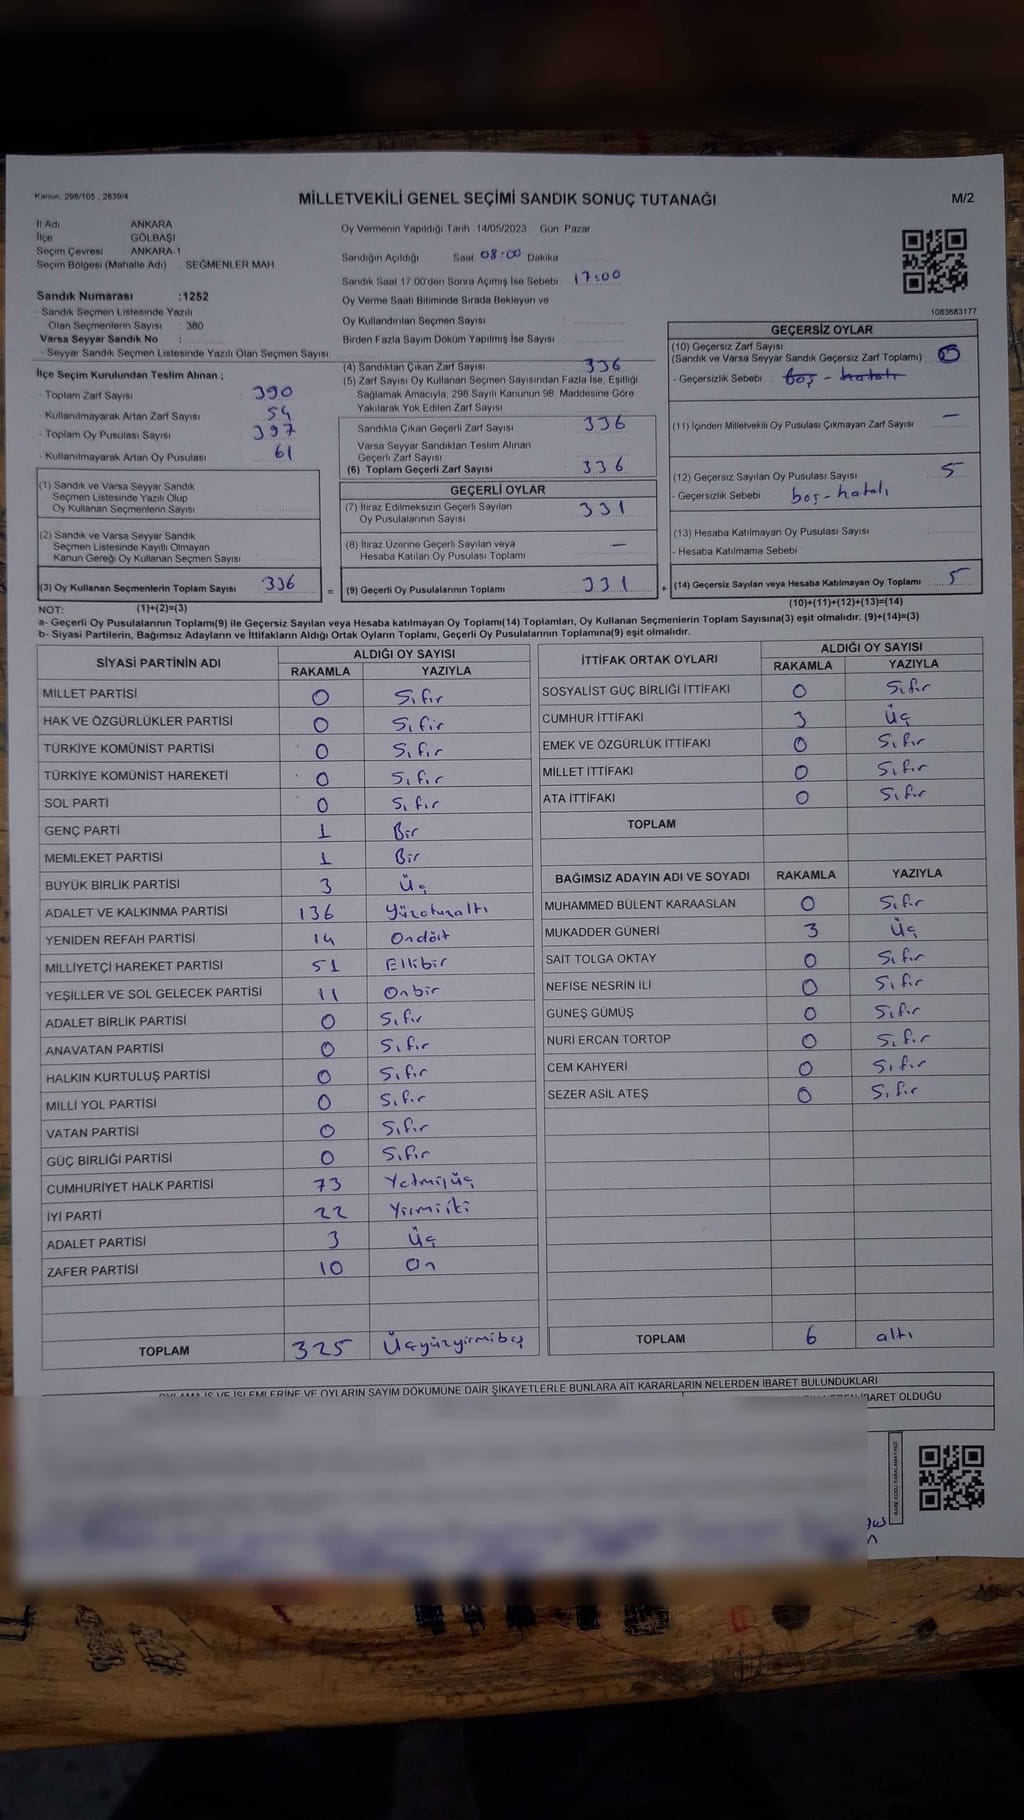 Kanun, 298/105 , 2839/4
MİLLETVEKİLİ GENEL SEÇİMİ SANDIK SONUÇ TUTANAĞI
M/2
İl Adı ANKARA
İlçe GÖLBAŞI
Seçim Çevresi ANKARA-1
Seçim Bölgesi (Mahalle Adı) : SEĞMENLER MAH
Oy Vermenin Yapıldığı Tarih 14/05/2023 Gün Pazar
Sandığın Açıldığı Saat 08:00 Dakika
Sandık Saat 17.00'den Sonra Açımış İse Sebebi : 17:00
Oy Verme Saati Bitiminde Sırada Bekleyen ve
Oy Kullandırılan Seçmen Sayısı
Birden Fazla Sayım Döküm Yapılmış İse Sayısı :
1083683177
Sandık Numarası :1252
- Sandık Seçmen Listesinde Yazılı
Olan Seçmenlerin Sayısı : 380
Varsa Seyyar Sandık No :
- Seyyar Sandık Seçmen Listesinde Yazılı Olan Seçmen Sayısı:
İlçe Seçim Kurulundan Teslim Alınan ;
- Toplam Zarf Sayısı 390
- Kullanılmayarak Artan Zarf Sayısı : 54
- Toplam Oy Pusulası Sayısı : 397
- Kullanılmayarak Artan Oy Pusulası : 61
(1) Sandık ve Varsa Seyyar Sandık
Seçmen Listesinde Yazılı Olup
Oy Kullanan Seçmenlerin Sayısı :
(2) Sandık ve Varsa Seyyar Sandık
Seçmen Listesinde Kayıtlı Olmayan
Kanun Gereği Oy Kullanan Seçmen Sayısı
(3) Oy Kullanan Seçmenlerin Toplam Sayısı : 336
(4) Sandıktan Çıkan Zarf Sayısı : 336
(5) Zarf Sayısı Oy Kullanan Seçmen Sayısından Fazla İse, Eşitliği
Sağlamak Amacıyla, 298 Sayılı Kanunun 98. Maddesine Göre
Yakılarak Yok Edilen Zarf Sayısı
Sandıkta Çıkan Geçerli Zarf Sayısı : 336
Varsa Seyyar Sandıktan Teslim Alınan
Geçerli Zarf Sayısı
(6) Toplam Geçerli Zarf Sayısı : 336
GEÇERLİ OYLAR
(7) İtiraz Edilmeksizin Geçerli Sayılan
Oy Pusulalarının Sayısı : 331
(8) İtiraz Üzerine Geçerli Sayılan veya
Hesaba Katılan Oy Pusulası Toplamı —
= (9) Geçerli Oy Pusulalarının Toplamı : 331
GEÇERSİZ OYLAR
(10) Geçersiz Zarf Sayısı
(Sandık ve Varsa Seyyar Sandık Geçersiz Zarf Toplamı)
- Geçersizlik Sebebi : boş - hatalı
(11) İçinden Milletvekili Oy Pusulası Çıkmayan Zarf Sayısı —
(12) Geçersiz Sayılan Oy Pusulası Sayısı : 5
- Geçersizlik Sebebi : boş-hatalı
(13) Hesaba Katılmayan Oy Pusulası Sayısı
- Hesaba Katılmama Sebebi :
+ (14) Geçersiz Sayılan veya Hesaba Katılmayan Oy Toplamı : 5
NOT: (1)+(2)=(3)
(10)+(11)+(12)+(13)=(14)
a- Geçerli Oy Pusulalarının Toplamı(9) ile Geçersiz Sayılan veya Hesaba katılmayan Oy Toplamı(14) Toplamları, Oy Kullanan Seçmenlerin Toplam Sayısına(3) eşit olmalıdır. (9)+(14)=(3)
b- Siyasi Partilerin, Bağımsız Adayların ve İttifakların Aldığı Ortak Oyların Toplamı, Geçerli Oy Pusulalarının Toplamına(9) eşit olmalıdır.
SİYASİ PARTİNİN ADI ALDIĞI OY SAYISI
RAKAMLA YAZIYLA
MİLLET PARTİSİ 0 Sıfır
HAK VE ÖZGÜRLÜKLER PARTİSİ 0 Sıfır
TÜRKİYE KOMÜNİST PARTİSİ 0 Sıfır
TÜRKİYE KOMÜNİST HAREKETİ 0 Sıfır
SOL PARTİ 0 Sıfır
GENÇ PARTİ 1 Bir
MEMLEKET PARTİSİ 1 Bir
BÜYÜK BİRLİK PARTİSİ 3 Üç
ADALET VE KALKINMA PARTİSİ 136 Yüzotuzaltı
YENİDEN REFAH PARTİSİ 14 Ondört
MİLLİYETÇİ HAREKET PARTİSİ 51 Ellibir
YEŞİLLER VE SOL GELECEK PARTİSİ 11 Onbir
ADALET BİRLİK PARTİSİ 0 Sıfır
ANAVATAN PARTİSİ 0 Sıfır
HALKIN KURTULUŞ PARTİSİ 0 Sıfır
MİLLİ YOL PARTİSİ 0 Sıfır
VATAN PARTİSİ 0 Sıfır
GÜÇ BİRLİĞİ PARTİSİ 0 Sıfır
CUMHURİYET HALK PARTİSİ 73 Yetmişüç
İYİ PARTİ 22 Yirmiiki
ADALET PARTİSİ 3 Üç
ZAFER PARTİSİ 10 On
TOPLAM 325 Üçyüzyirmibeş
İTTİFAK ORTAK OYLARI ALDIĞI OY SAYISI
RAKAMLA YAZIYLA
SOSYALİST GÜÇ BİRLİĞİ İTTİFAKI 0 Sıfır
CUMHUR İTTİFAKI 3 Üç
EMEK VE ÖZGÜRLÜK İTTİFAKI 0 Sıfır
MİLLET İTTİFAKI 0 Sıfır
ATA İTTİFAKI 0 Sıfır
TOPLAM
BAĞIMSIZ ADAYIN ADI VE SOYADI RAKAMLA YAZIYLA
MUHAMMED BÜLENT KARAASLAN 0 Sıfır
MUKADDER GÜNERİ 3 Üç
SAİT TOLGA OKTAY 0 Sıfır
NEFİSE NESRİN İLİ 0 Sıfır
GÜNEŞ GÜMÜŞ 0 Sıfır
NURİ ERCAN TORTOP 0 Sıfır
CEM KAHYERİ 0 Sıfır
SEZER ASİL ATEŞ 0 Sıfır
TOPLAM 6 altı
OYLAMA İŞ VE İŞLEMLERİNE VE OYLARIN SAYIM DÖKÜMÜNE DAİR ŞİKAYETLERLE BUNLARA AİT KARARLARIN NELERDEN İBARET BULUNDUKLARI
İBARET OLDUĞU